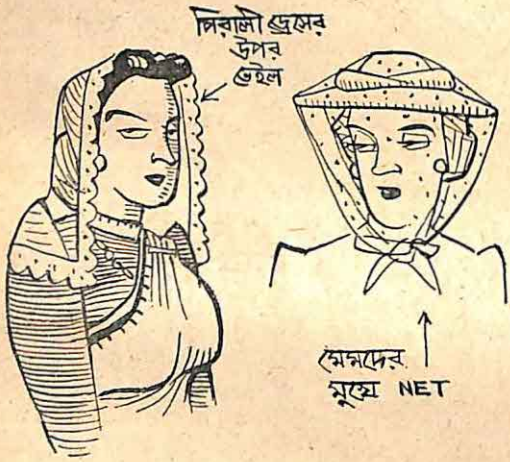 পিরালী ড্রেসের
উপর
ভেইল
মেমদের
মুখে NET